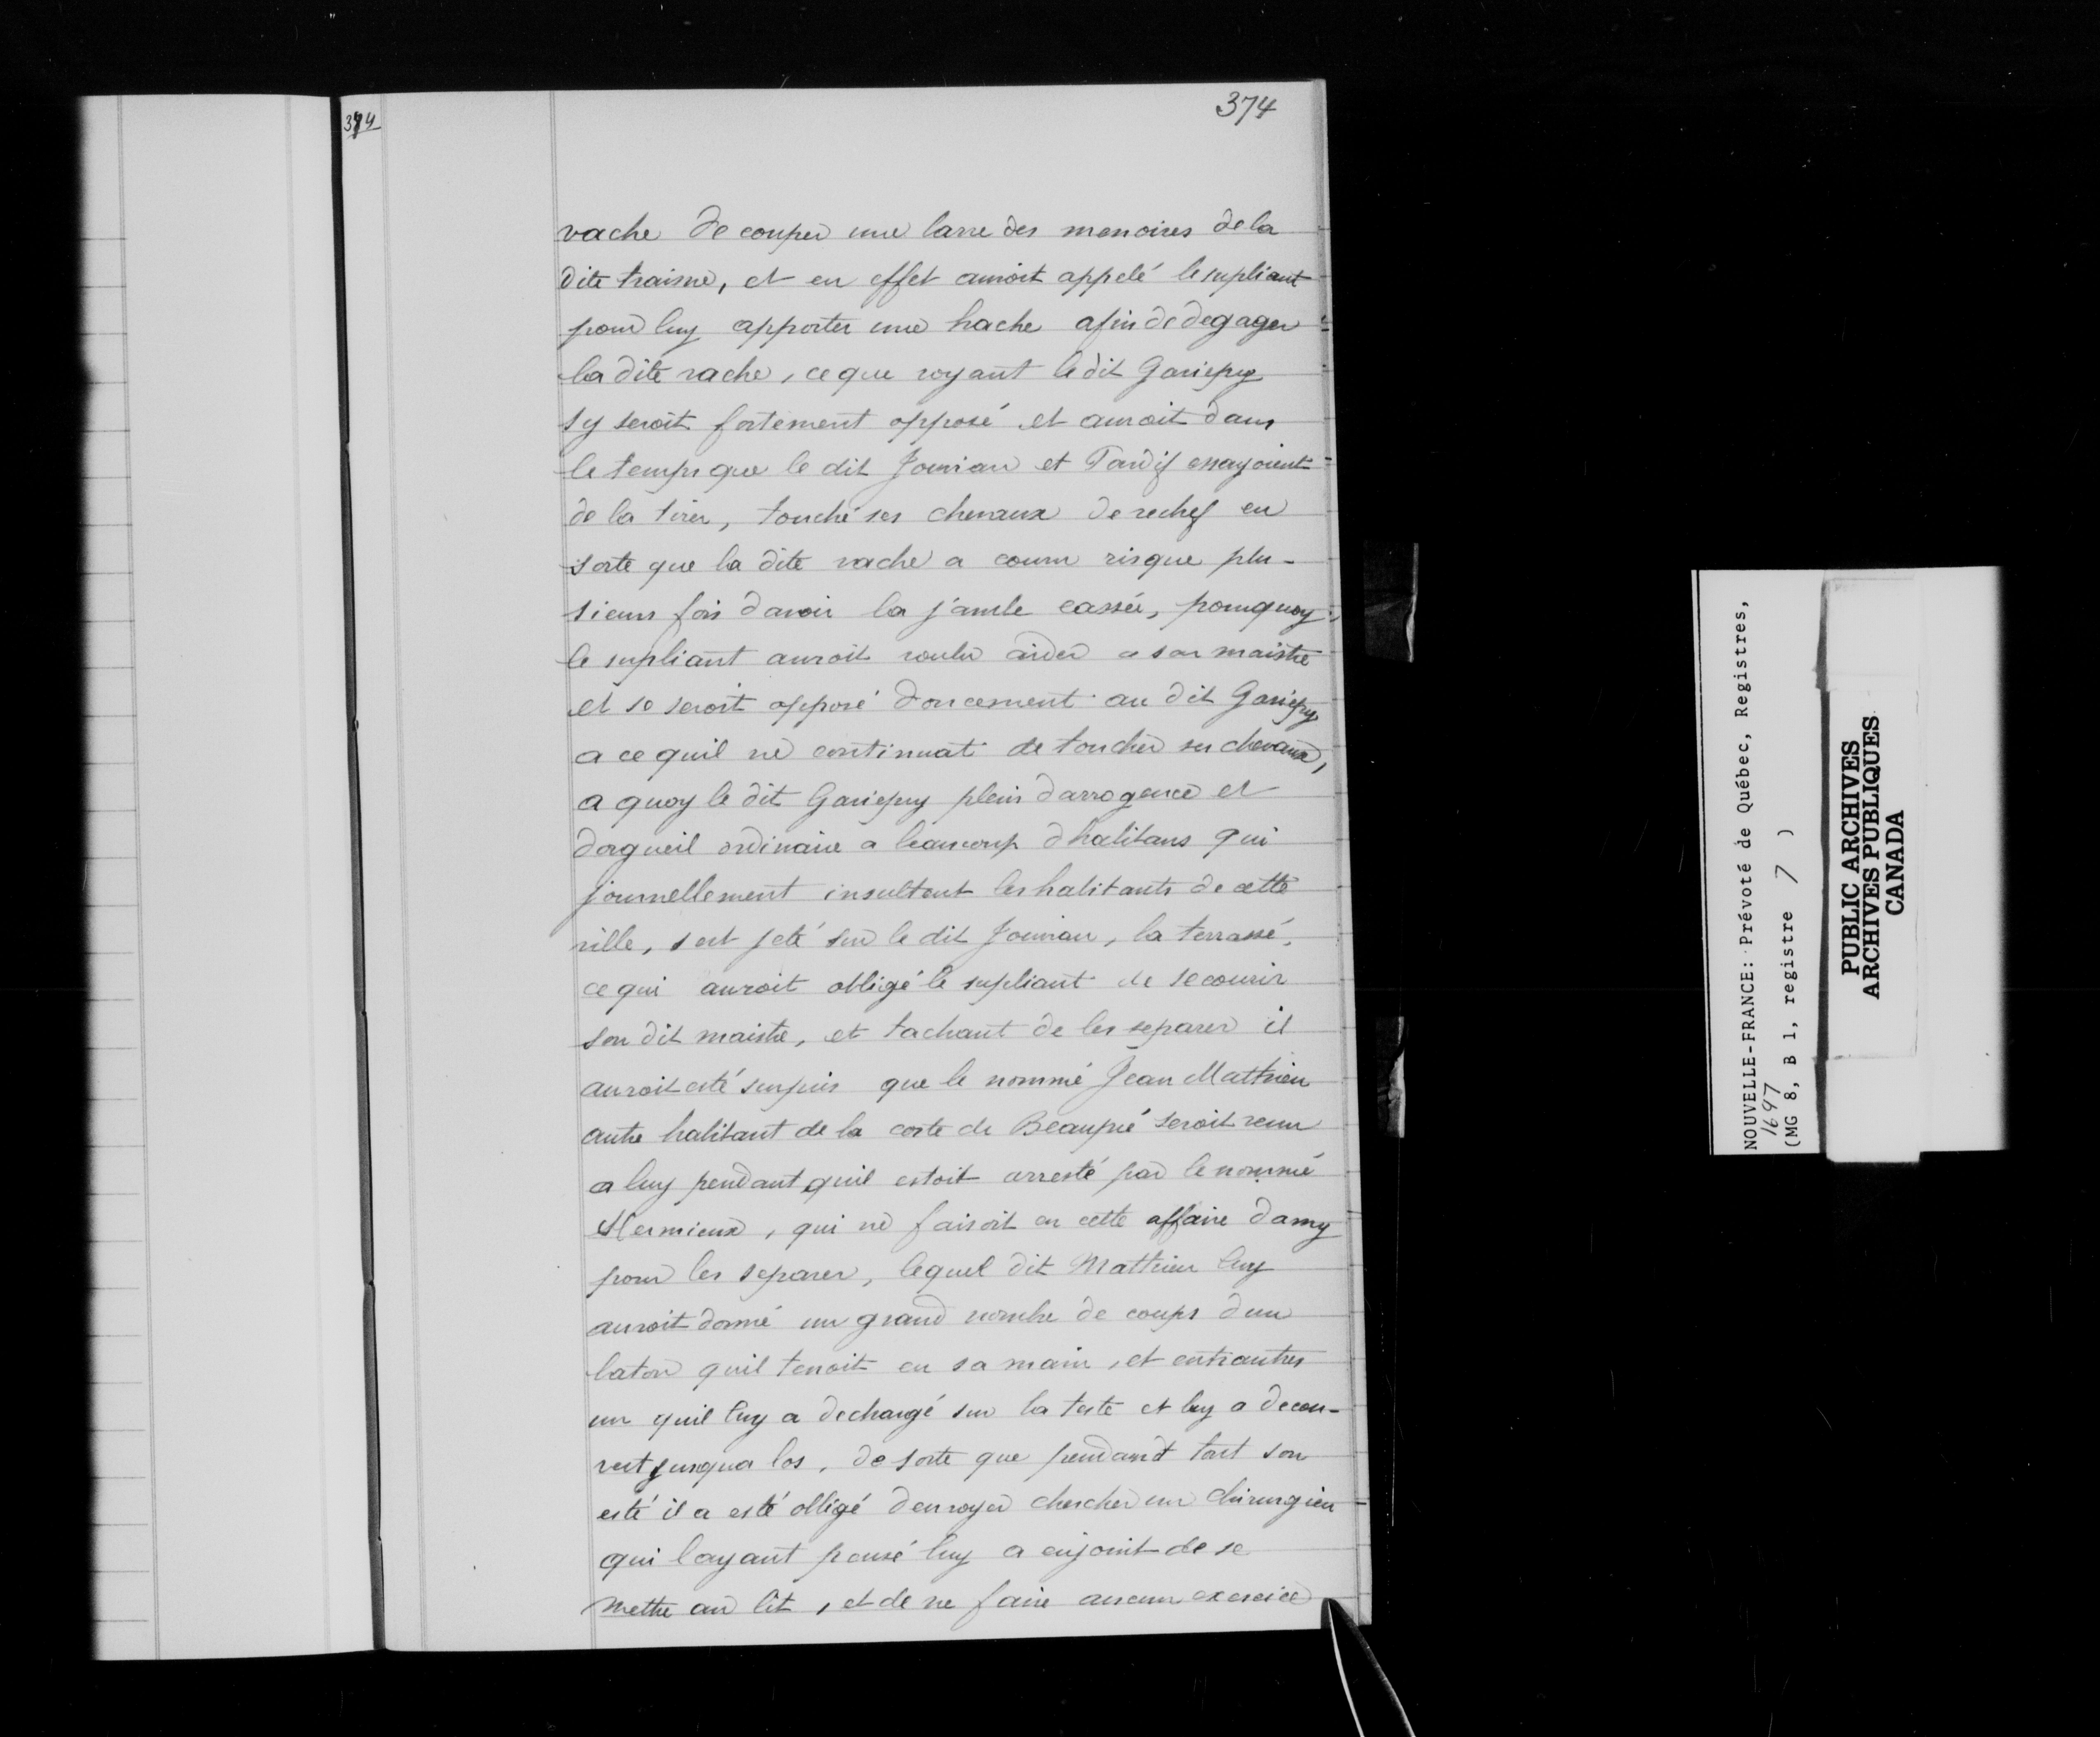 374
374
vache de couper une barre des menoires de la
dite traisne, et en effet auroit appelé le supliant
pour luy apporter une hache afin de degager
la dite vache, ce que voyant le dit Gariepy
sy seroit fortement opposé et auroit dans
le temps que le dit Jourian et Tardif essayoient
de la tirer, touché ses chevaux derechef en
sorte que la dite vache a couru risque plu-
sieurs fois davoir la jambe cassée, pourquoy
le supliant auroit voulu aider a son maistre
et se seroit opposé doucement au dit Gariepy
a ce quil ne continuat de toucher ses chevaux,
a quoy le dit Gariepuy plein darrogence et
dorgueil ordinaire a beaucoup dhabitans qui
journellement insultent les habitants de cette
ville, sest jeté sur le dit Jourian, la terrassé,
ce qui auroit obligé le supliant de secourir
son dit maistre, et tachant de les separer il
auroit esté surpris que le nommé Jean Mathieu
autre habitant de la coste de Beaupré seroit venu
a luy pendant quil estoit arresté par le nommé
Mermieux, qui ne faisoit en cette affaire damy
pour les separer, lequel dit Mathieu luy
auroit donné un grand nombre de coups dun
baton quil tenoit en sa main, et entrautres
un quil luy a dechargé sur la teste et luy a decou-
vert jusqua los, de sorte que pendant tout son
esté il a esté obligé denvoyer chercher un chirurgien
qui layant pensé luy a enjoint de se
mettre au lit, et de ne faire aucun exercice
NOUVELLE-FRANCE: Prévoté de Québec, Registres,
1697
(MG 8, B 1, registre 7 )
PUBLIC ARCHIVES
ARCHIVES PUBLIQUES
CANADA